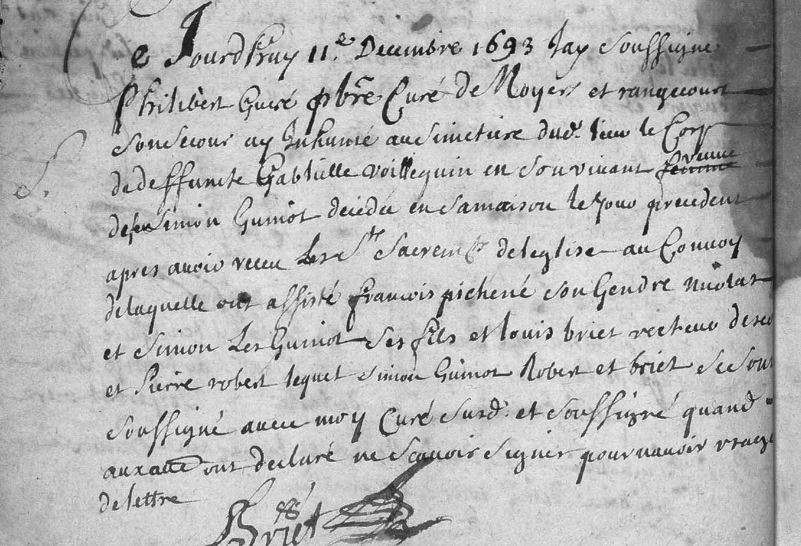 Ce Jourdhuy 11.e Decembre 1693 Jay soussigné
Philibert Gueré pbre Curé De Noyers et rangecourt
son secour ay Inhumé au simetiere dud. lieu le Corp
de deffuncte Gabrielle voillequin en souvivant femme venue
de feu simon Guiniot decedee en sa maison le jour precedent
apres avoir receu Les Sts Sacremts de leglise au Convoy
de laquelle ont assisté francois pichené son Gendre nicolas
et simon Les Guiniot ses fils et louis briet recteur desec
et Pierre robert lequel simon Guiniot Robert et briet se sont
soussigné avec moy Curé susd. et soussigné quand
aux aue ont declaré ne scavoir signer pour navoir usage
de lettre
Briet